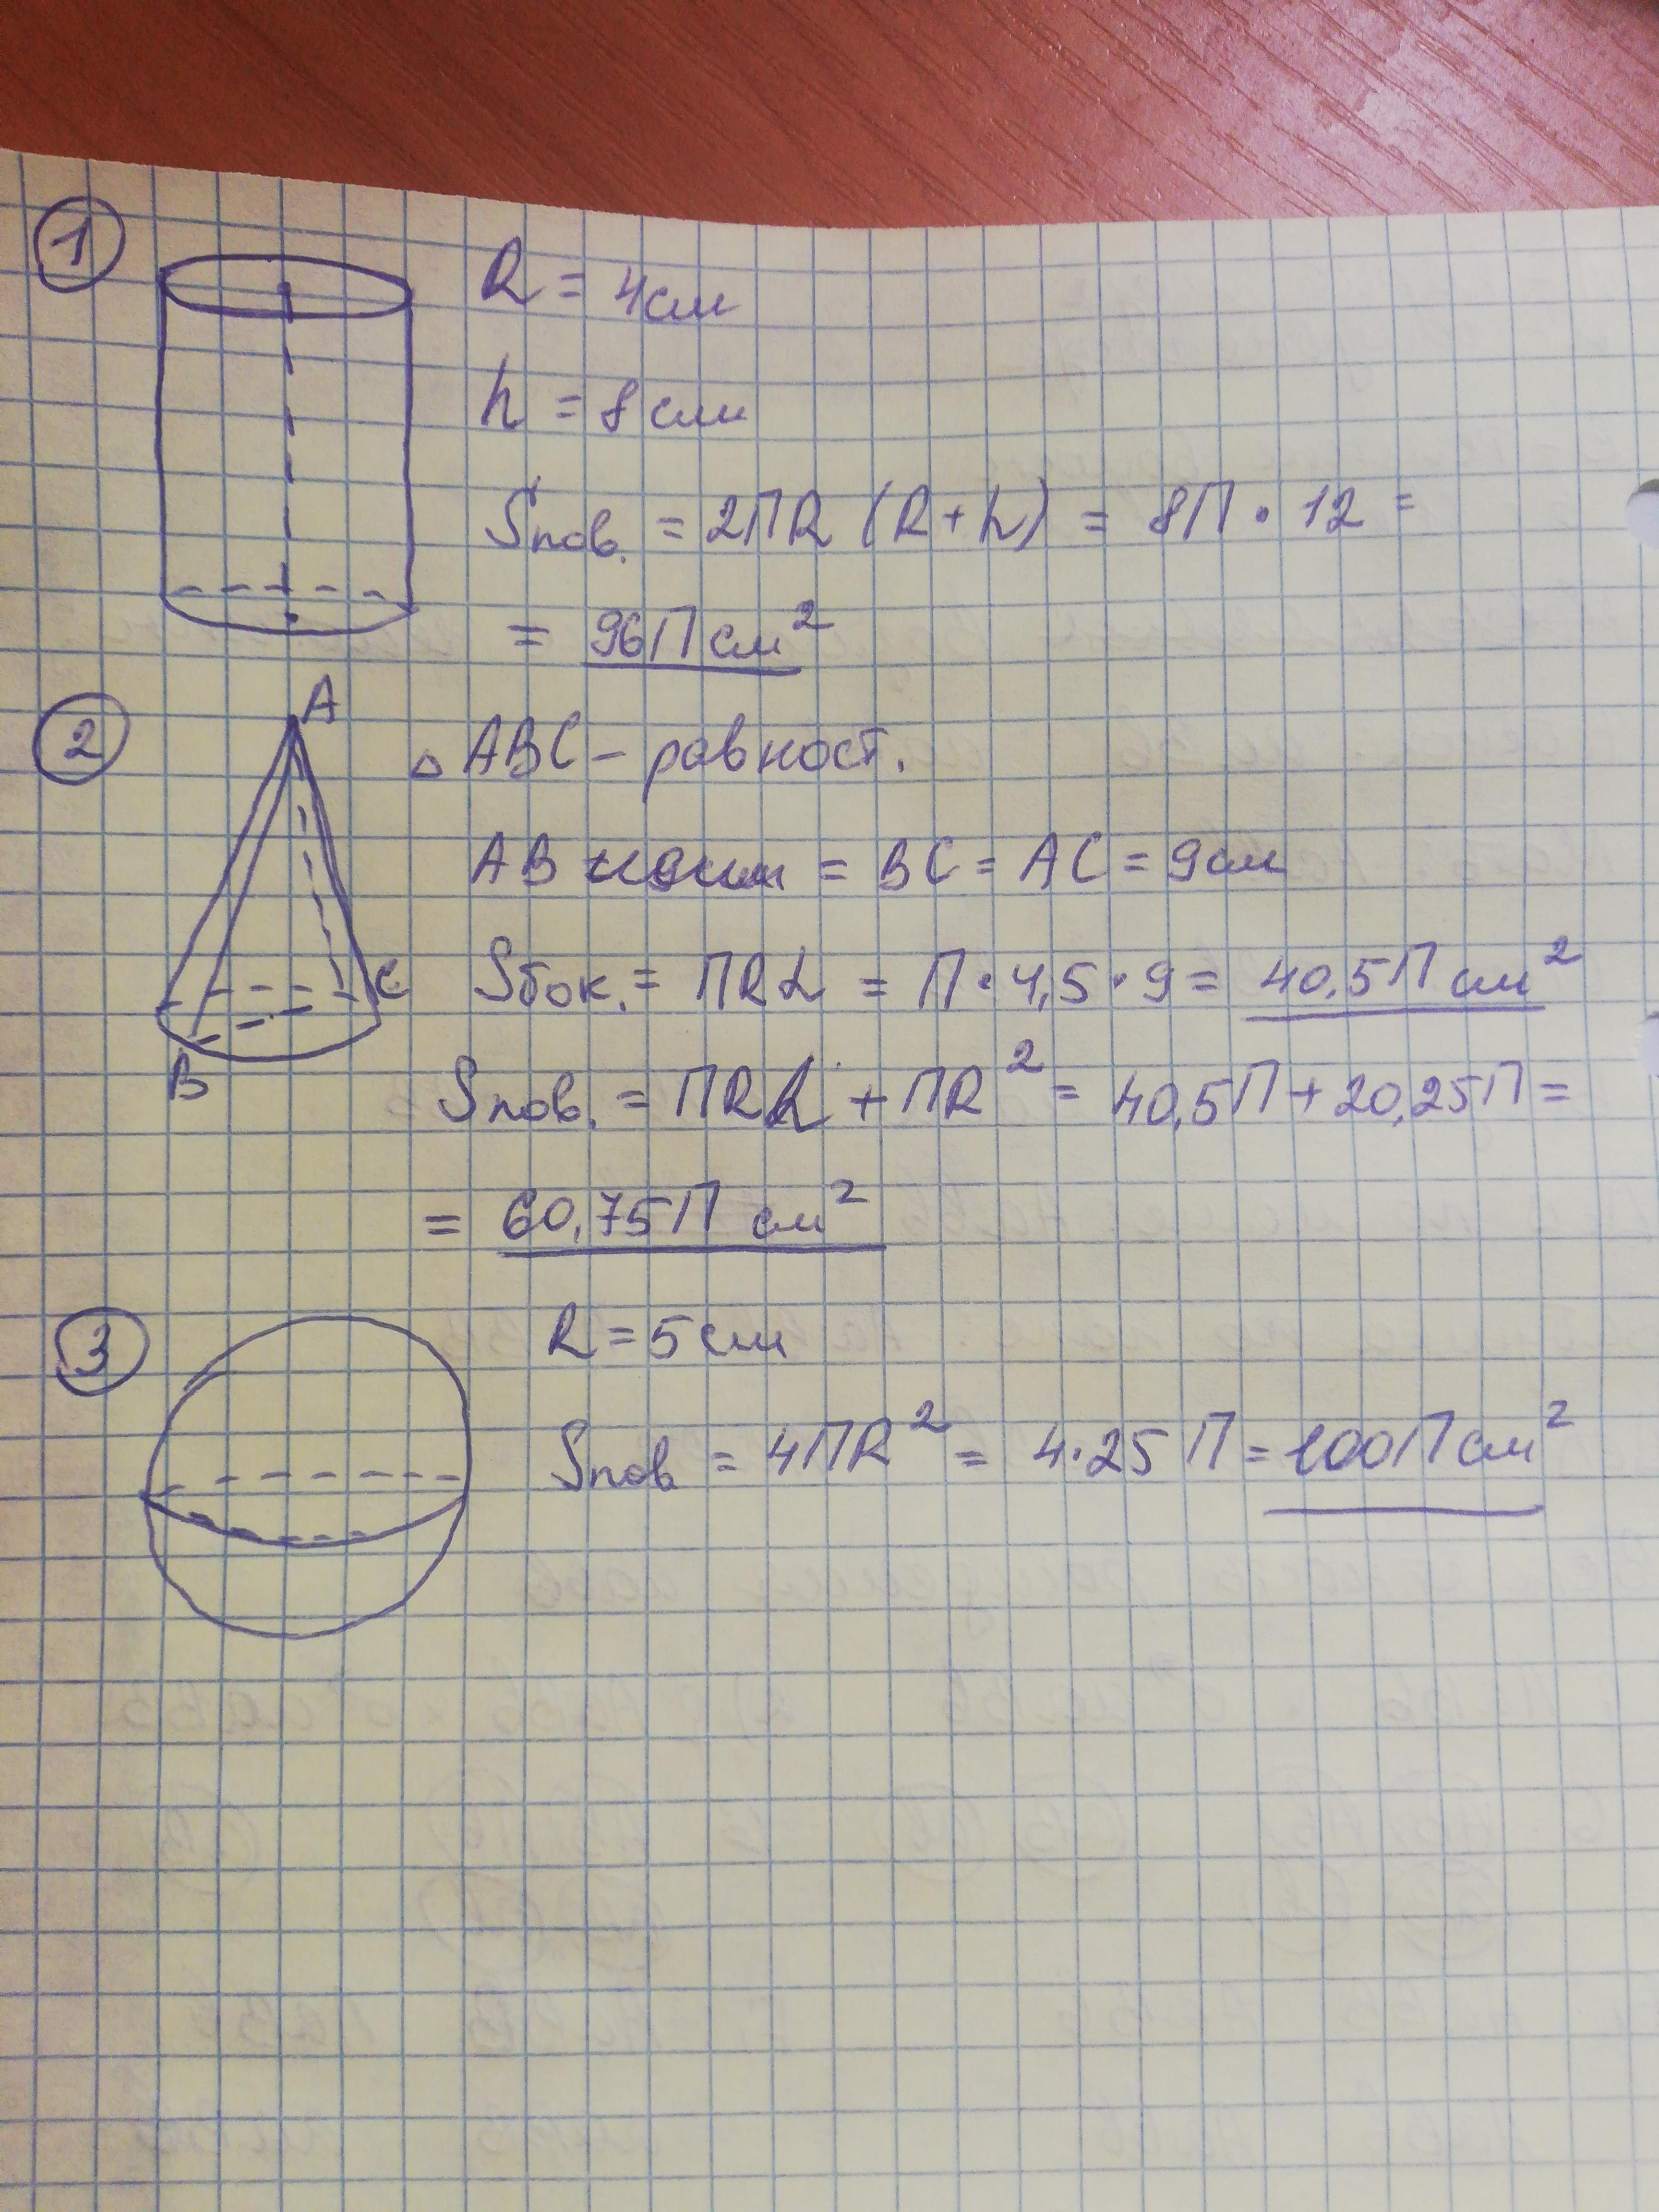 1
R = 4см
h = 8см
Sпов. = 2ПR (R+h) = 8П • 12 =
= 96П см²
2
A
B
C
△ ABC – равност.
AB = BC = AC = 9см
Sбок. = ПRL = П • 4,5 • 9 = 40,5П см²
Sпов. = ПRL + ПR² = 40,5П + 20,25П =
= 60,75П см²
3
R = 5см
Sпов = 4ПR² = 4•25П = 100П см²